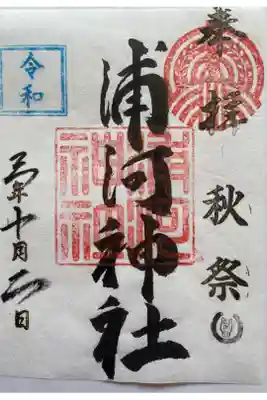 奉拝 秋祭
浦河神社
令和
年十月二日